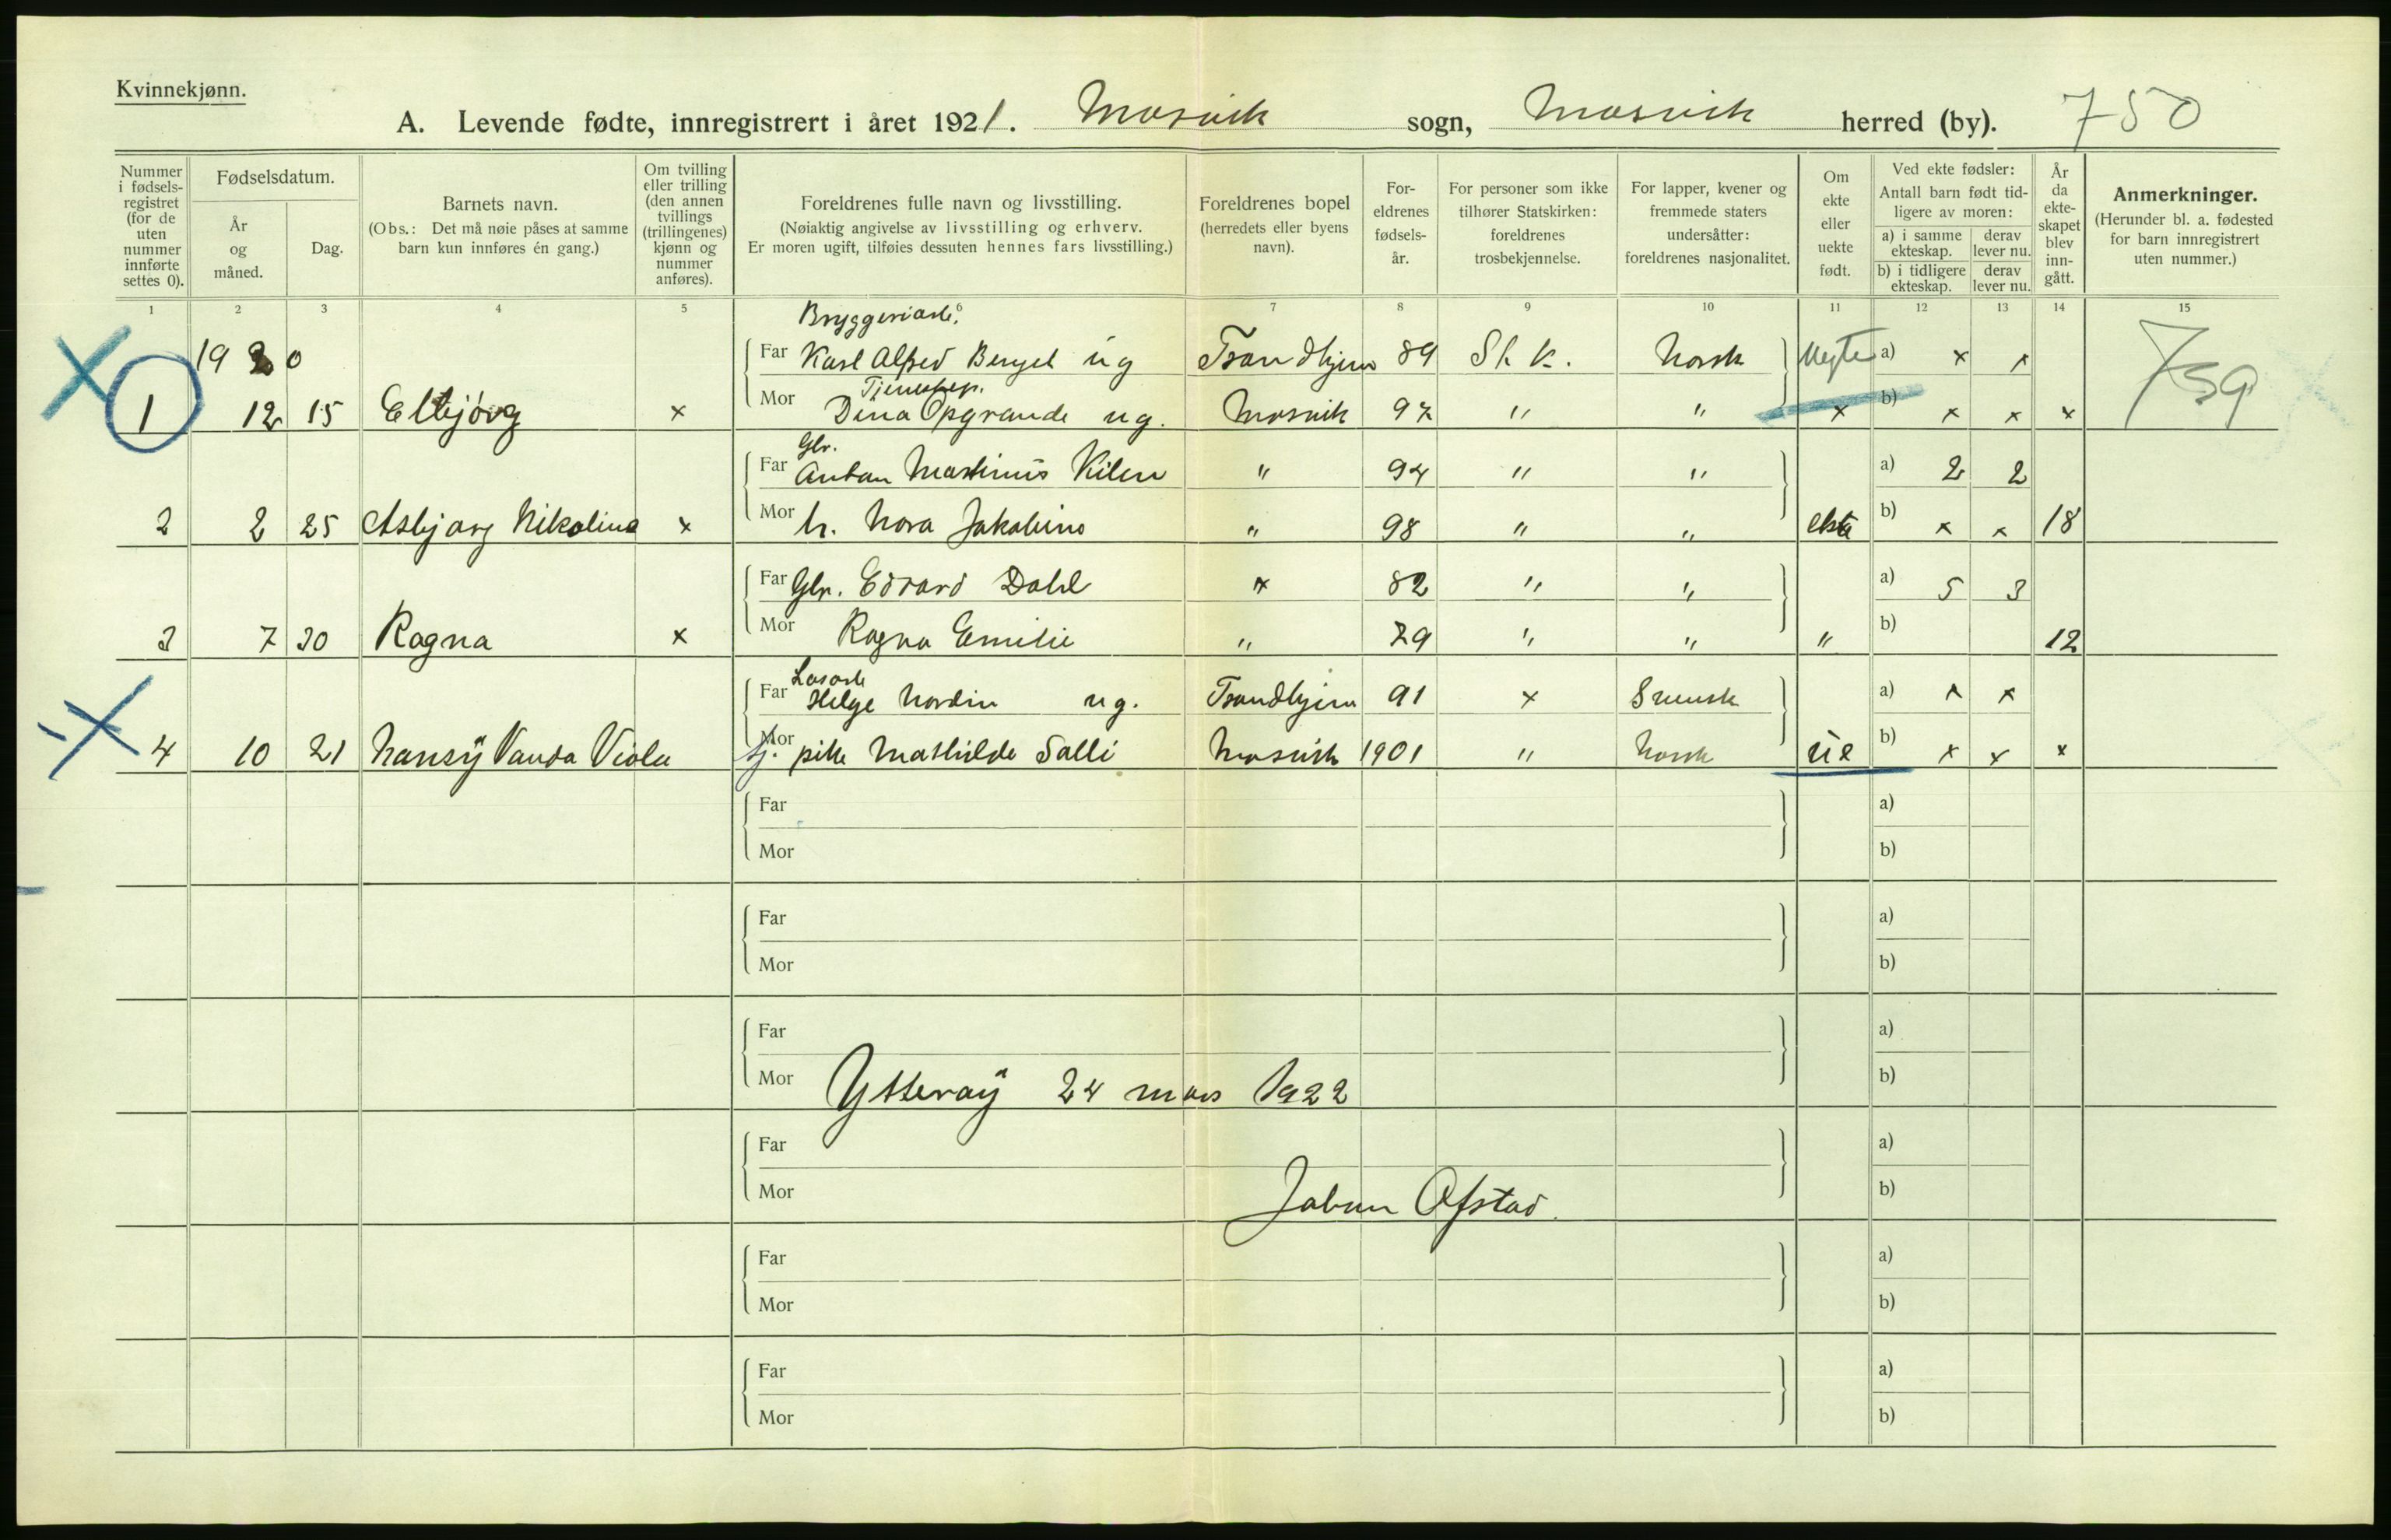 Kvinnekjønn.
A. Levende fødte, innregistrert i året 1921. Mosvik sogn, Mosvik herred (by). 750
Nummer i fødselsregistret (for de uten nummer innførte settes 0).
Fødselsdatum.
År og måned.
Dag.
Barnets navn.
(Obs.: Det må nøie påses at samme barn kun innføres én gang.)
Om tvilling eller trilling (den annen tvillings (trillingenes) kjønn og nummer anføres).
Foreldrenes fulle navn og livsstilling.
(Nøiaktig angivelse av livsstilling og erhverv.
Er moren ugift, tilføies dessuten hennes fars livsstilling.)
Foreldrenes bopel (herredets eller byens navn).
Foreldrenes fødselsår.
For personer som ikke tilhører Statskirken: foreldrenes trosbekjennelse.
For lapper, kvener og fremmede staters undersåtter: foreldrenes nasjonalitet.
Om ekte eller uekte født.
Ved ekte fødsler:
Antall barn født tidligere av moren:
a) i samme ekteskap. derav lever nu.
b) i tidligere ekteskap. derav lever nu.
År da ekteskapet blev inngått.
Anmerkninger.
(Herunder bl. a. fødested for barn innregistrert uten nummer.)
1 2 3 4 5 6 7 8 9 10 11 12 13 14 15
Bryggeriarb.
1920 Far Karl Alfred Berget ug Trondhjem 89 St. K. Norsk Uegte a) x x 759
Tjenestep.
1 12 15 Elbjörg x Mor Dina Opgrande ug. Mosvik 97 " " x b) x x x
Gbr.
Far Anton Martinus Kilen " 94 " " a) 2 2
2 2 25 Asbjørg Nikoline x Mor h. Nora Jakobine " 98 " " ekte b) x x 18
Far Gbr. Edvard Dahl " 82 " " a) 5 3
3 7 30 Ragna x Mor Ragna Emilie " 79 " " " b) 12
Far Helge Nordin ug. Trondhjem 91 x Svensk a) x x
4 10 21 Nansÿ Vanda Viola Mor tj. pike Mathilde Salli Mosvik 1901 " Norsk ue b) x x x
Far a)
Mor b)
Far a)
Mor b)
Far a)
Mor Ytterøÿ 24 mars 1922 b)
Far a)
Mor Johan Ofstad. b)
Far a)
Mor b)
Far a)
Mor b)